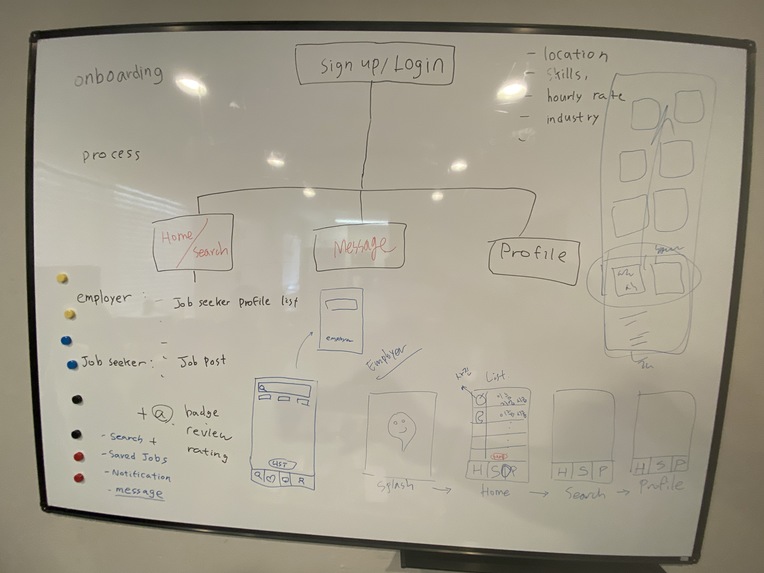 onboarding
Sign up/Login
- location
- skills,
- hourly rate
- industry
process
Home/
Search
Message
Profile
employer : - Job seeker profile list
Job seeker: - Job post
+ a. badge
review
rating
- Search +
- Saved Jobs
- Notification
- message
Employer
List
LIST
H S P
H S P
H S P
Splash → Home → Search → Profile